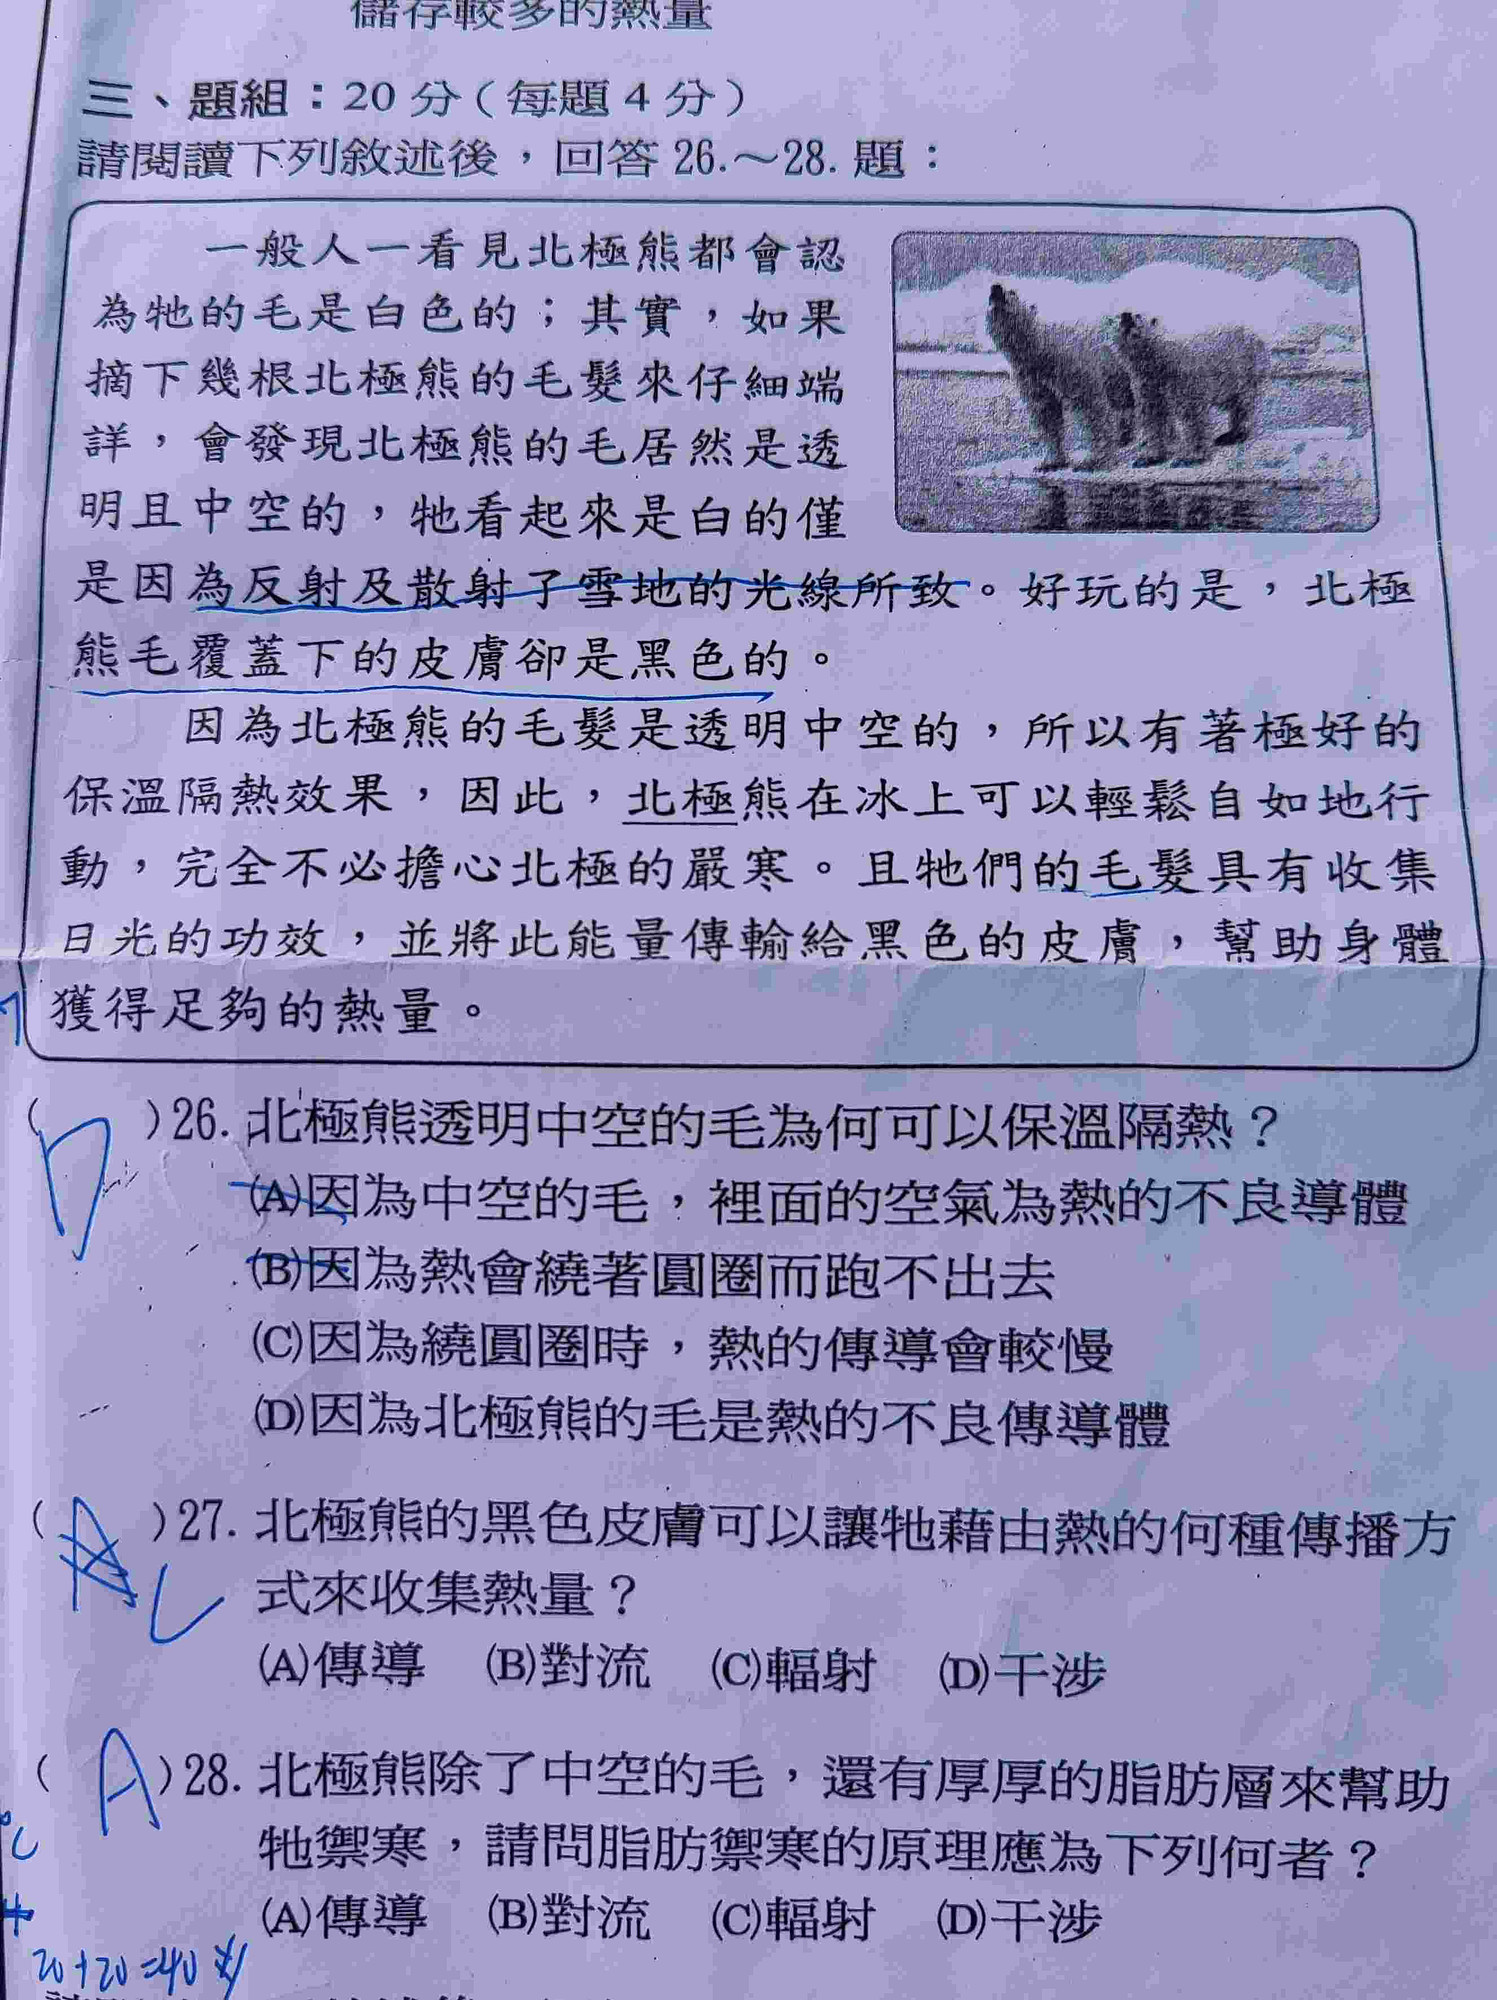 儲存較多的熱量
三、題組：20 分（每題 4 分）
請閱讀下列敘述後，回答 26.～28. 題：
一般人一看見北極熊都會認
為牠的毛是白色的；其實，如果
摘下幾根北極熊的毛髮來仔細端
詳，會發現北極熊的毛居然是透
明且中空的，牠看起來是白的僅
是因為反射及散射了雪地的光線所致。好玩的是，北極
熊毛覆蓋下的皮膚卻是黑色的。
因為北極熊的毛髮是透明中空的，所以有著極好的
保溫隔熱效果，因此，北極熊在冰上可以輕鬆自如地行
動，完全不必擔心北極的嚴寒。且牠們的毛髮具有收集
日光的功效，並將此能量傳輸給黑色的皮膚，幫助身體
獲得足夠的熱量。
( D )26. 北極熊透明中空的毛為何可以保溫隔熱？
(A)因為中空的毛，裡面的空氣為熱的不良導體
(B)因為熱會繞著圓圈而跑不出去
(C)因為繞圓圈時，熱的傳導會較慢
(D)因為北極熊的毛是熱的不良傳導體
( )27. 北極熊的黑色皮膚可以讓牠藉由熱的何種傳播方
C 式來收集熱量？
(A)傳導 (B)對流 (C)輻射 (D)干涉
( A )28. 北極熊除了中空的毛，還有厚厚的脂肪層來幫助
℃ 牠禦寒，請問脂肪禦寒的原理應為下列何者？
(A)傳導 (B)對流 (C)輻射 (D)干涉
20+20=40